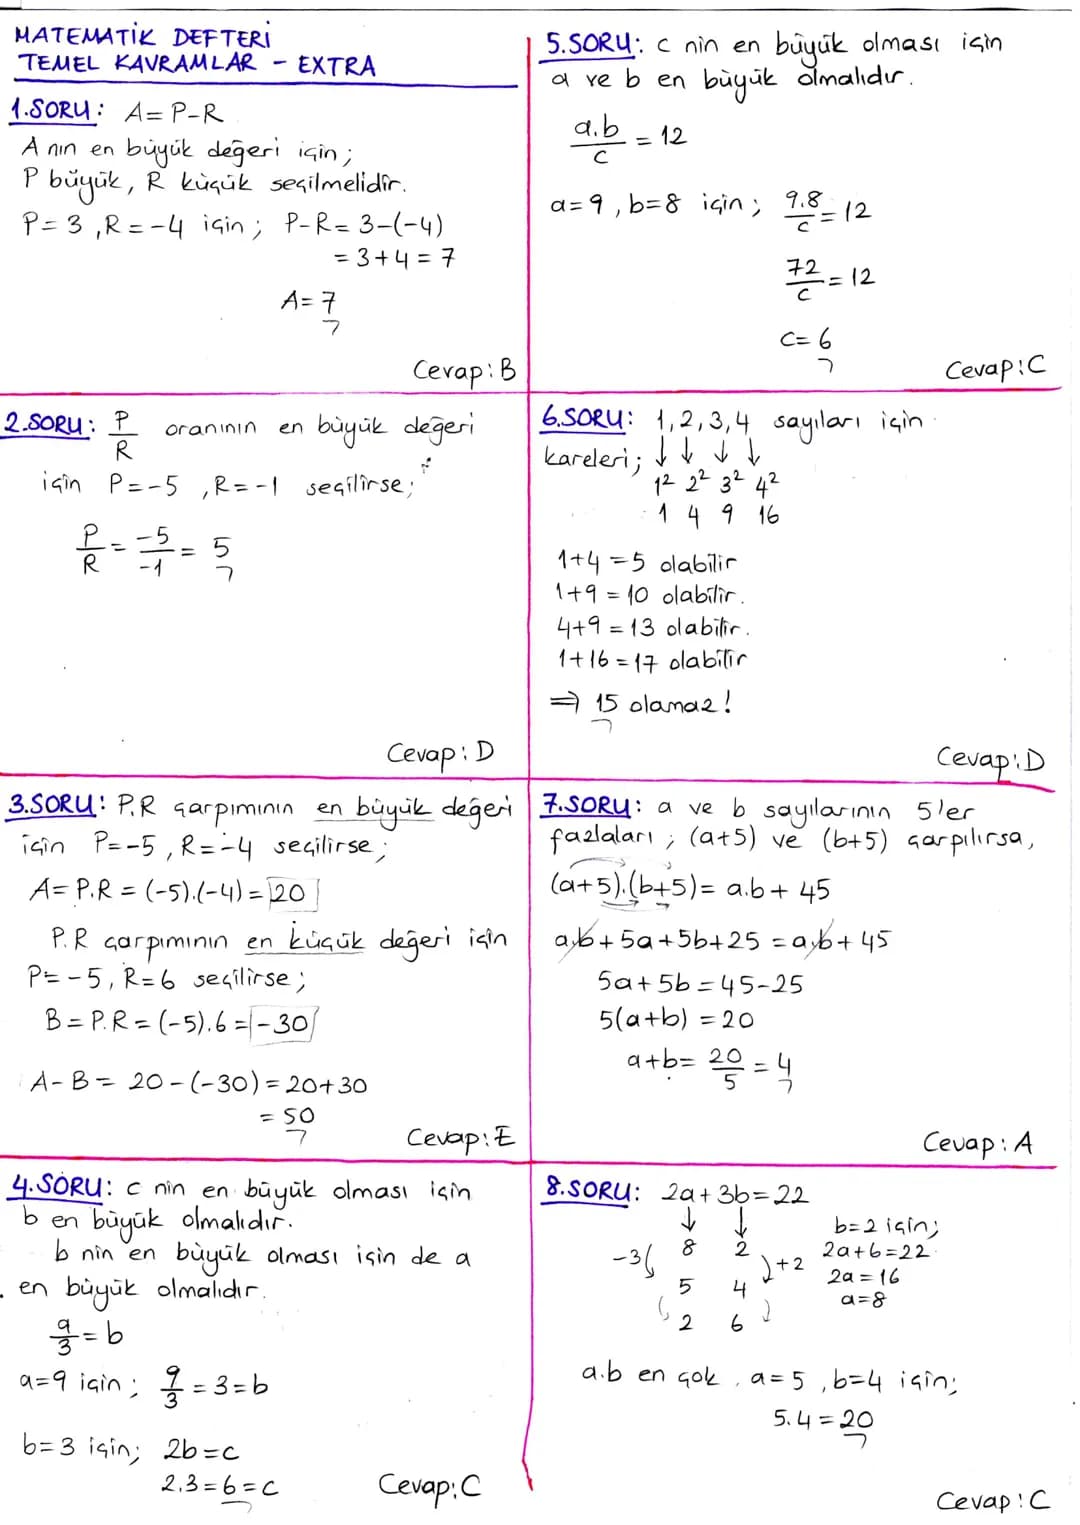 MATEMATİK DEFTERİ
TEMEL KAVRAMLAR - EXTRA
1.SORU: A= P-R
A nın en büyük değeri için;
P büyük, R küçük seçilmelidir.
P= 3 ,R= -4 için; P-R= 3-(-4)
= 3+4 = 7
A= 7
Cevap: B
2.SORU: P/R oranının en büyük değeri
için P=-5 ,R=-1 seçilirse;
P/R = -5/-1 = 5
Cevap: D
3.SORU: P.R çarpımının en büyük değeri
için P=-5, R=-4 seçilirse;
A= P.R = (-5).(-4) = 20
P.R çarpımının en küçük değeri için
P= -5, R=6 seçilirse;
B= P.R = (-5).6 = -30
A-B= 20-(-30) = 20+30
= 50
Cevap: E
4.SORU: c nin en büyük olması için
b en büyük olmalıdır.
b nin en büyük olması için de a
en büyük olmalıdır.
a/3 = b
a=9 için; 9/3 = 3 = b
b=3 için; 2b=c
2.3=6=c
Cevap: C
5.SORU: c nin en büyük olması için
a ve b en büyük olmalıdır.
a.b/c = 12
a=9, b=8 için; 9.8/c = 12
72/c = 12
c= 6
Cevap: C
6.SORU: 1,2,3,4 sayıları için
kareleri; ↓ ↓ ↓ ↓
1² 2² 3² 4²
1 4 9 16
1+4 =5 olabilir
1+9 = 10 olabilir.
4+9 = 13 olabilir.
1+16 = 17 olabilir
⇒ 15 olamaz!
Cevap: D
7.SORU: a ve b sayılarının 5'er
fazlaları; (a+5) ve (b+5) çarpılırsa,
(a+5).(b+5)= a.b+ 45
a.b+5a+5b+25 = a.b+ 45
5a+5b = 45-25
5(a+b) = 20
a+b= 20/5 = 4
Cevap: A
8.SORU: 2a+3b=22
↓ ↓ b=2 için;
-3( 8 2 )+2 2a+6=22
5 4 2a=16
2 6 a=8
a.b en çok, a=5, b=4 için;
5.4=20
Cevap: C